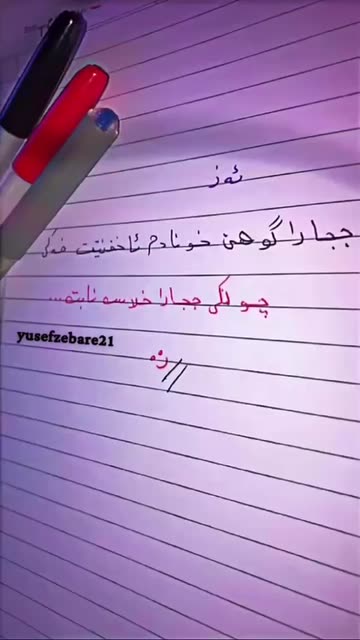 ئەز
ججارا گوهێ خو نادم ئاخفنێت خەلکی
چونکی ججارا خلاسە نابتە...
yusefzebare21